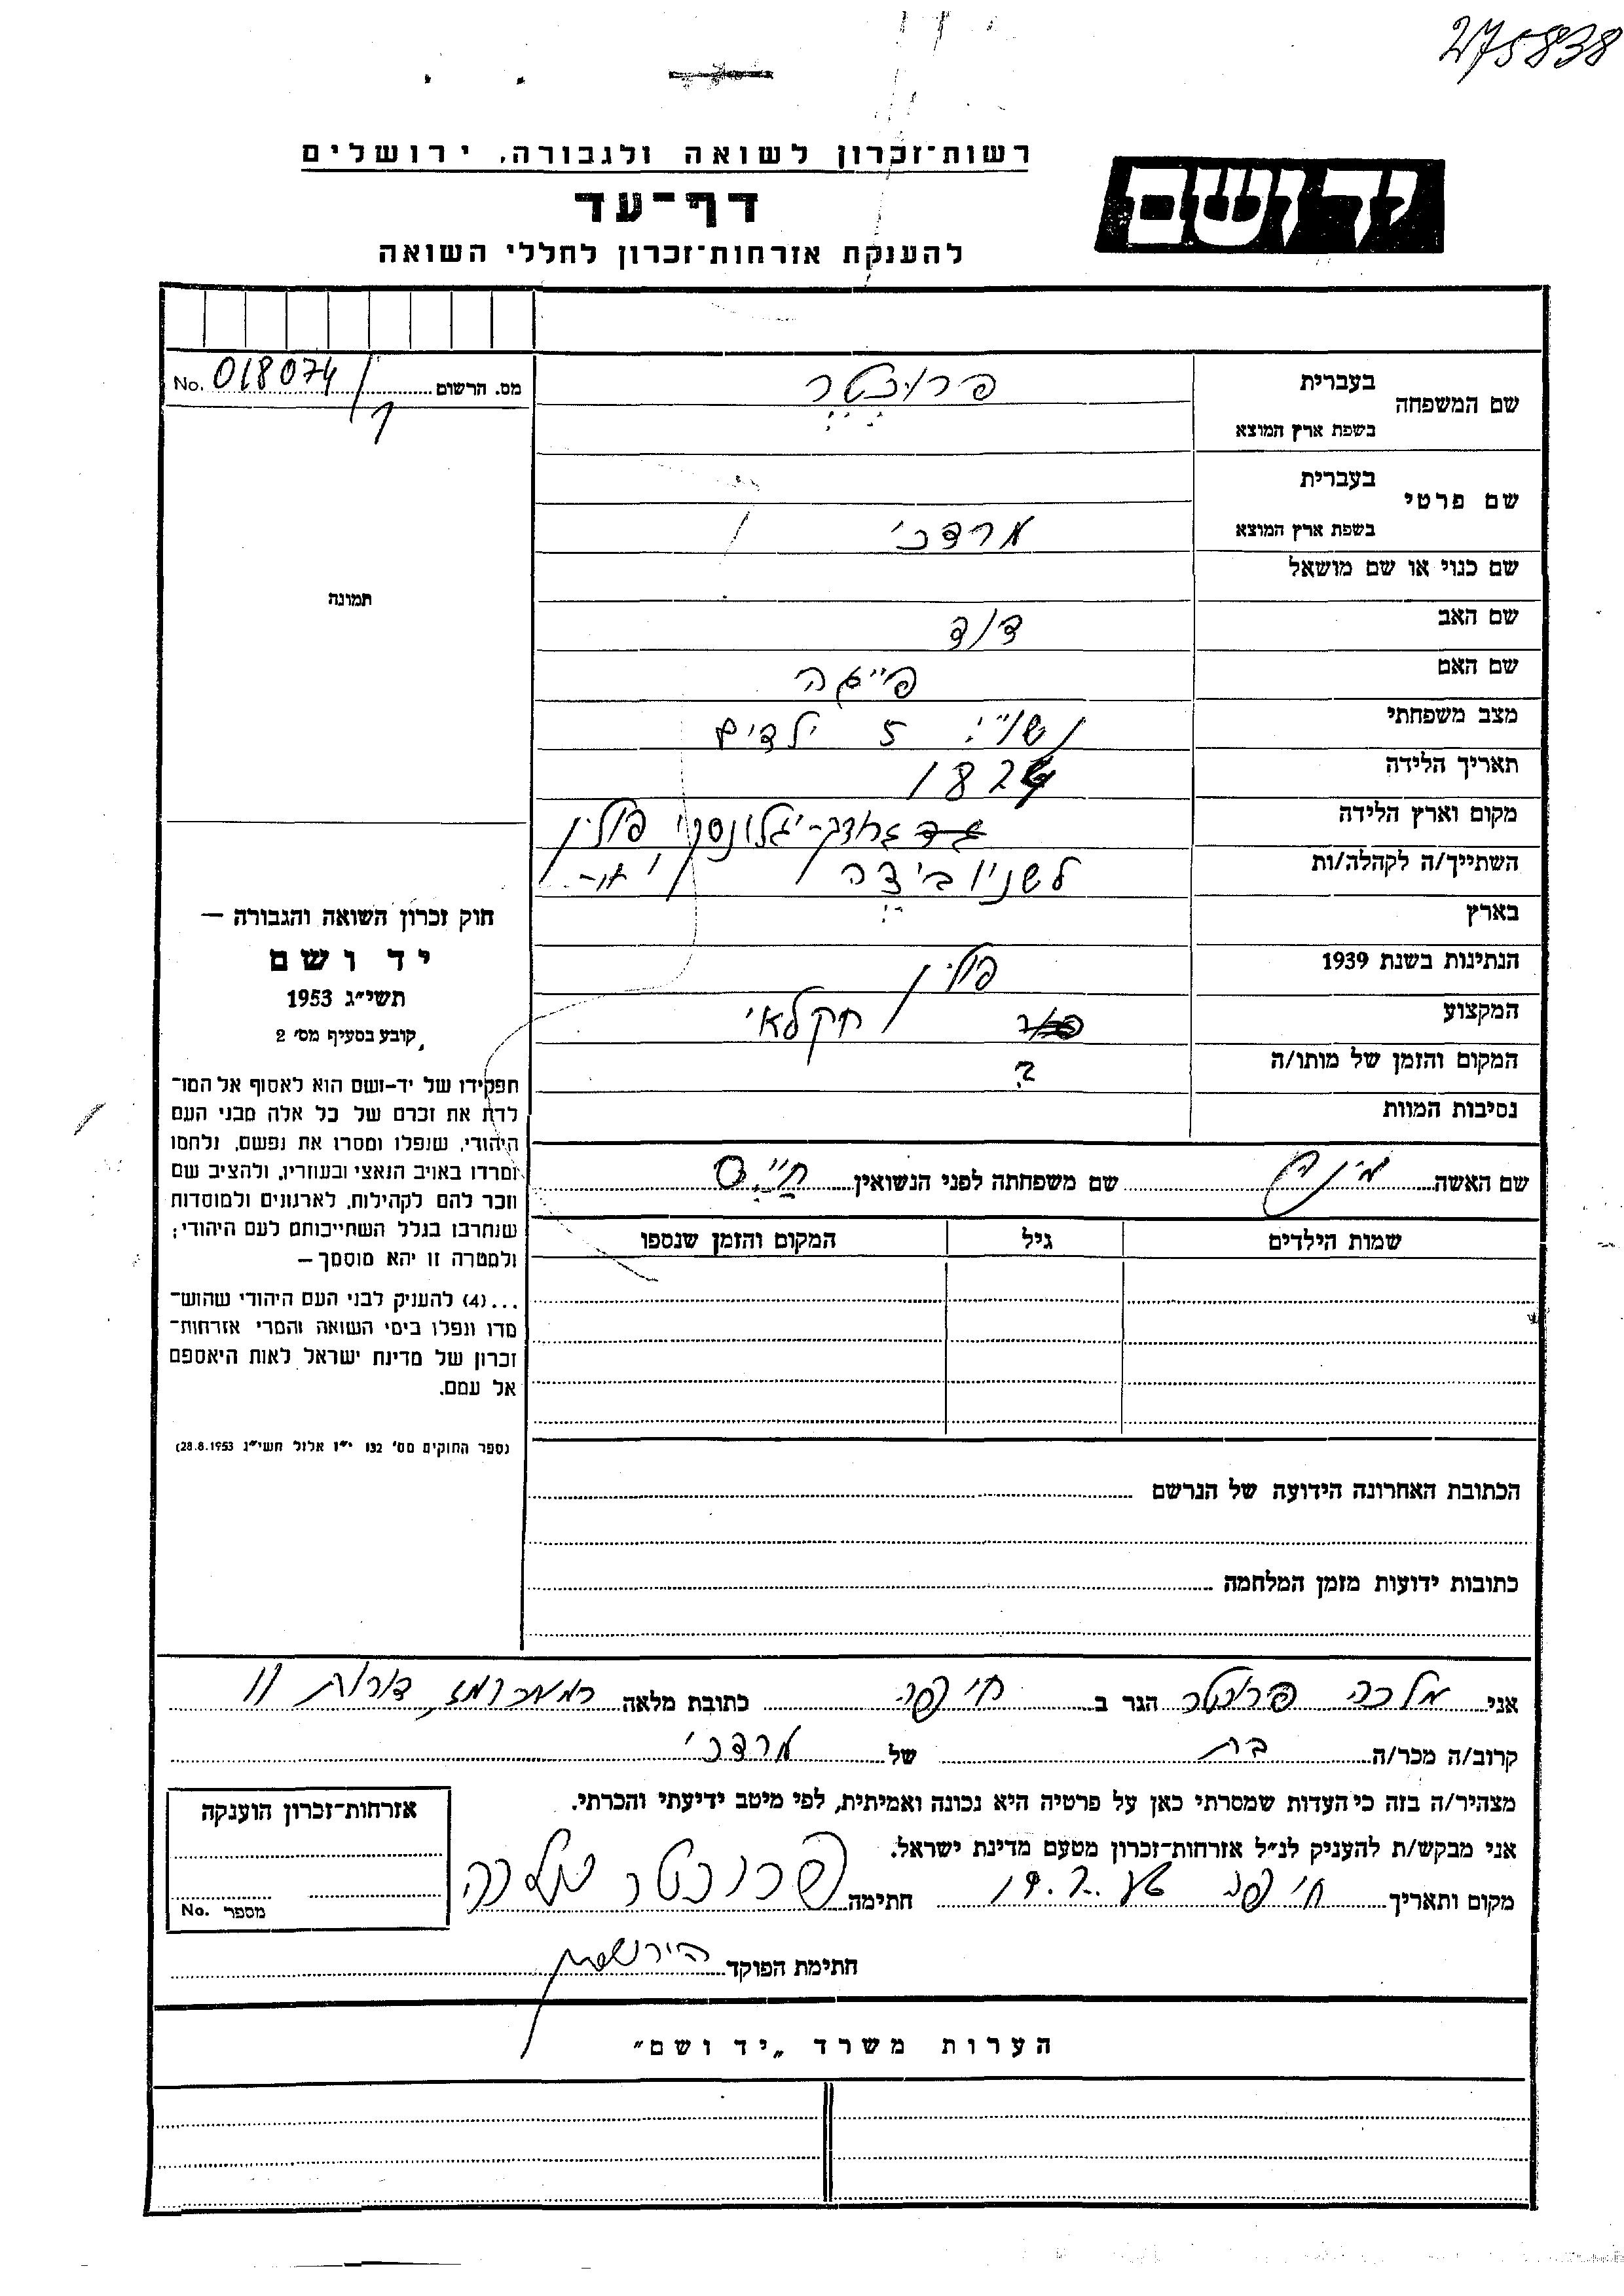 275838
רשות־זכרון לשואה ולגבורה, ירושלים
יד ושם
דף־עד
להענקת אזרחות־זכרון לחללי השואה
מס. הרשום 018074 No.
שם המשפחה בעברית פרוכטר
בשפת ארץ המוצא
שם פרטי בעברית
בשפת ארץ המוצא מרדכי
שם כנוי או שם מושאל
שם האב דוד
שם האם פייגה
מצב משפחתי נשוי 5 ילדים
תאריך הלידה
מקום וארץ הלידה פולין
השתייך/ה לקהלה/ות
בארץ
הנתינות בשנת 1939 פולין
המקצוע חקלאי
המקום והזמן של מותו/ה ?
נסיבות המוות
שם האשה שם משפחתה לפני הנשואין
שמות הילדים גיל המקום והזמן שנספו
הכתובת האחרונה הידועה של הנרשם
כתובות ידועות מזמן המלחמה
תמונה
חוק זכרון השואה והגבורה —
יד ושם
תשי״ג 1953
קובע בסעיף מס׳ 2
תפקידו של יד־ושם הוא לאסוף אל המו־
לדת את זכרם של כל אלה מבני העם
היהודי, שנפלו ומסרו את נפשם, נלחמו
ומרדו באויב הנאצי ובעוזריו, ולהציב שם
וזכר להם לקהילות, לארגונים ולמוסדות
שנחרבו בגלל השתייכותם לעם היהודי;
ולמטרה זו יהא מוסמך —
...(4) להעניק לבני העם היהודי שהוש־
מדו ונפלו בימי השואה והמרי אזרחות־
זכרון של מדינת ישראל לאות היאספם
אל עמם.
(ספר החוקים מס׳ 132 י״ז אלול תשי״ג 28.8.1953)
אני מלכה פרוכטר הגר ב חיפה כתובת מלאה דורות 11
קרוב/ה מכר/ה בת של מרדכי
מצהיר/ה בזה כי העדות שמסרתי כאן על פרטיה היא נכונה ואמיתית, לפי מיטב ידיעתי והכרתי.
אני מבקש/ת להעניק לנ״ל אזרחות־זכרון מטעם מדינת ישראל.
מקום ותאריך חיפה חתימה פרוכטר מלכה
חתימת הפוקד
אזרחות־זכרון הוענקה
מספר No.
הערות משרד „יד ושם״